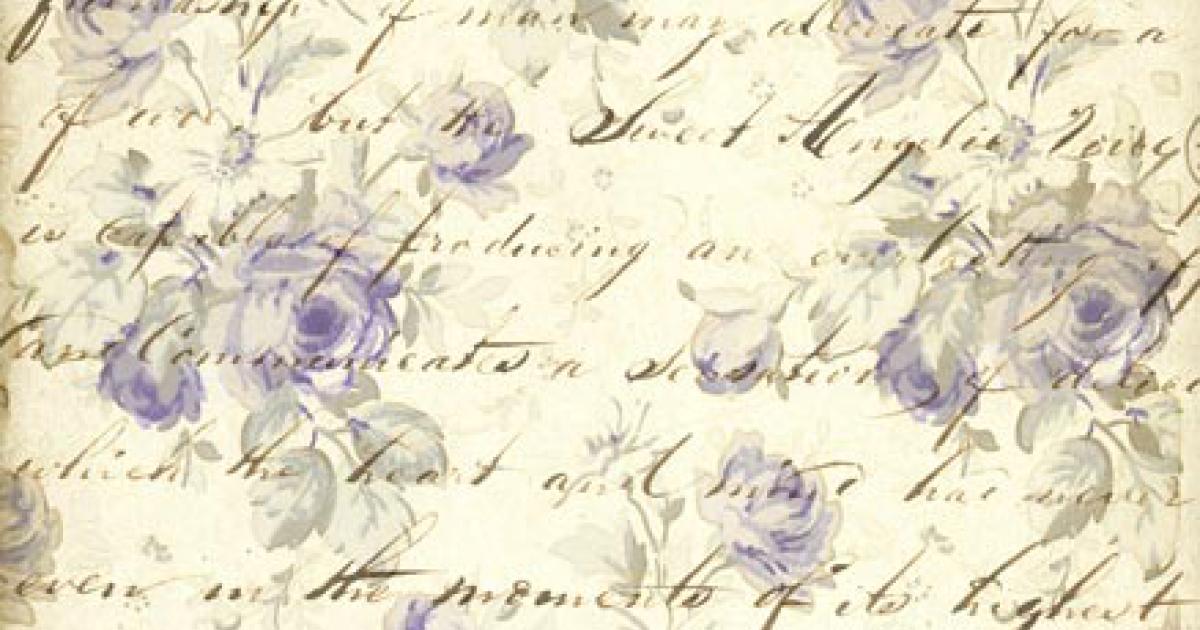 friendship of man may alleviate for a
of woe but the Sweet Angelic
is capable of producing an everlasting
and Communicates a sensation of
which the heart and mind has never
even in the moments of its highest